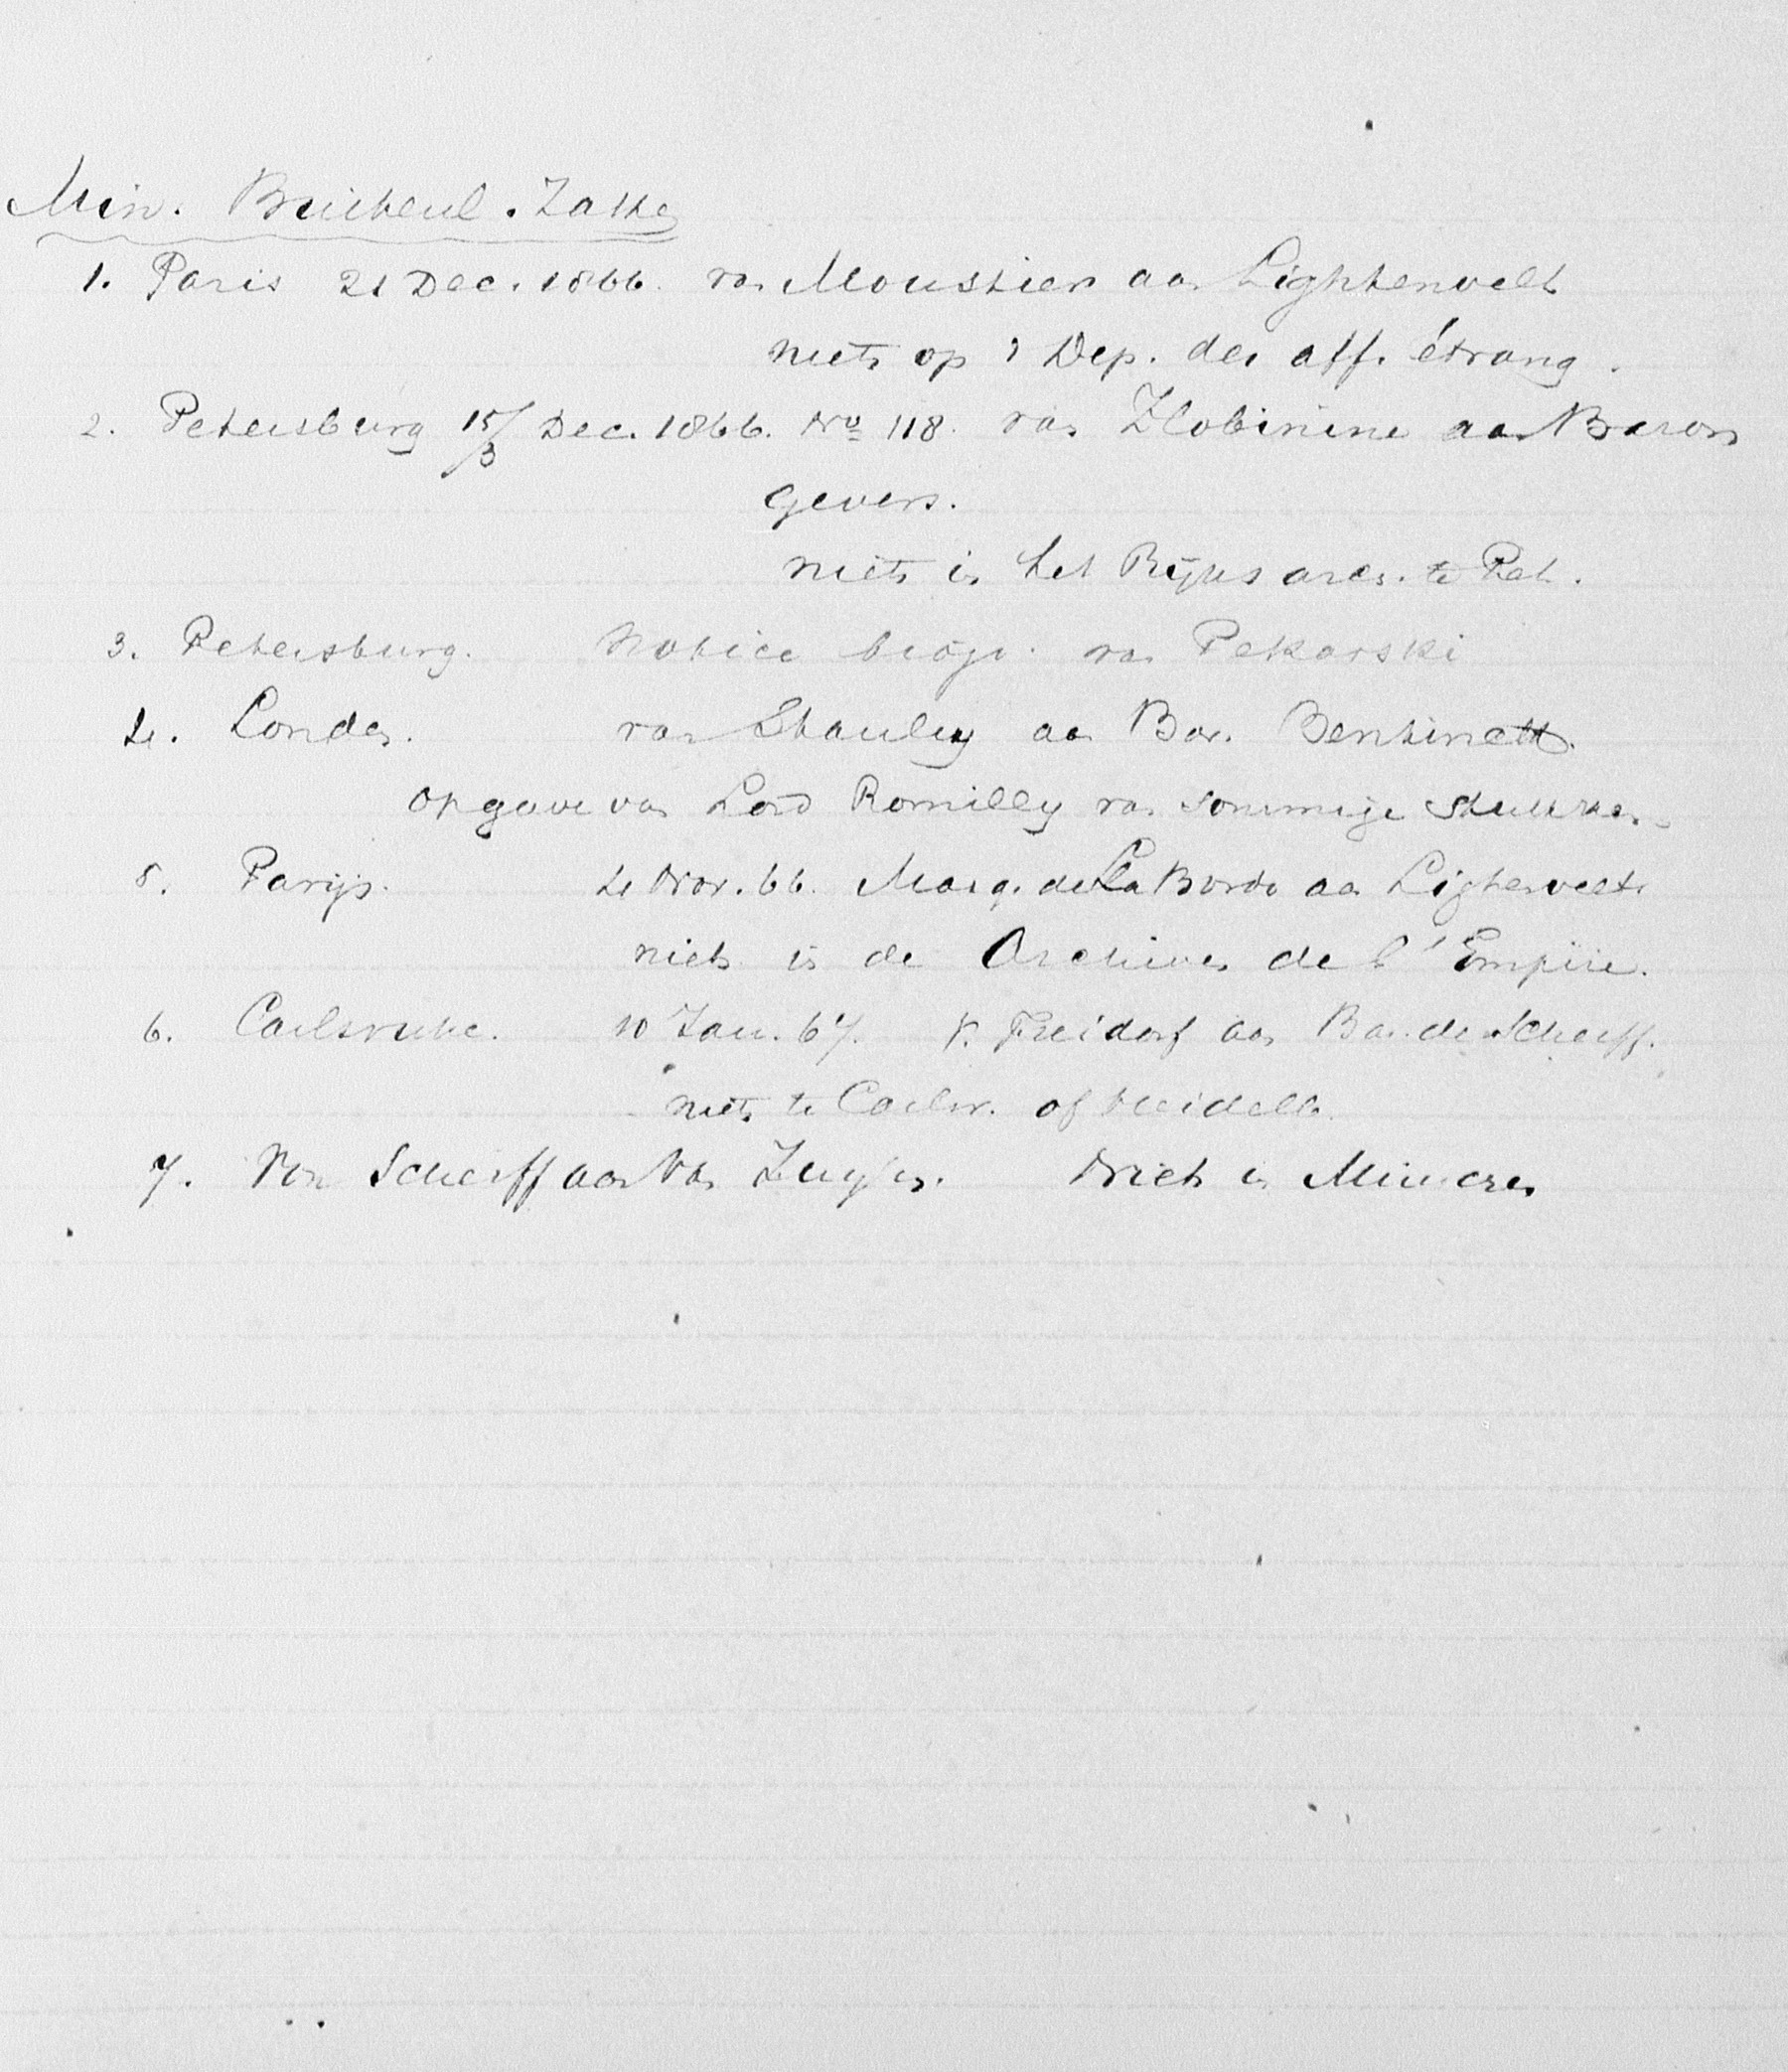 Min. Buitenl. Zaken
1. Paris 21 Dec. 1866. van Moustier aan Lightenvelt
niets op 't Dep. des aff. étrang.
2. Petersburg 15/3 Dec. 1866. No 118. van Zlobinine aan Baron
Gevers.
niets in het Rijksarch. te Pet.
3. Petersburg. Notice biogr. van Pekarski
4. Londen. van Stanley aan Bar. Bentinck.
opgave van Lord Romilly van sommige stukken.
5. Parijs. 4 Nov. 66. Marq. de La Borde aan Lightenvelt
niets in de Archives de l'Empire.
6. Carlsruhe. 10 Jan. 67. v. Freidorf aan Bar. de Scherff.
niets te Carlsr. of Heidelb.
7. Von Scherff aan Van Zuylen. Niets in München